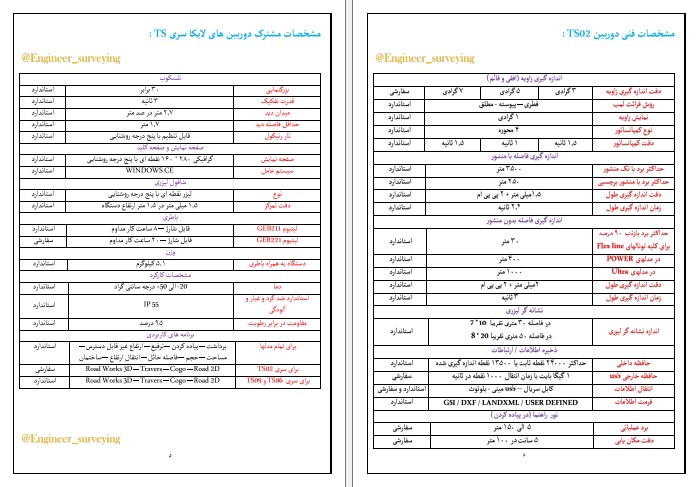 مشخصات فنی دوربین TS02 :
@Engineer_surveying
اندازه گیری زاویه (افقی و قائم)
دقت اندازه گیری زاویه ۳ گرادی ۵ گرادی ۷ گرادی سفارشی
روش قرائت لمب قطری – پیوسته - مطلق استاندارد
نمایش زاویه ۱ گرادی استاندارد
نوع کمپانساتور ۴ محوره استاندارد
دقت کمپانساتور ۱,۵ ثانیه ۱ ثانیه ۱,۵ ثانیه استاندارد
اندازه گیری فاصله با منشور
حداکثر برد با تک منشور ۳۵۰۰ متر استاندارد
حداکثر برد با منشور برچسبی ۲۵۰ متر استاندارد
دقت اندازه گیری طول ۱,۵میلی متر + ۲ پی پی ام استاندارد
زمان اندازه گیری طول ۲,۴ ثانیه استاندارد
اندازه گیری فاصله بدون منشور
حداکثر برد بازتب ۹۰ درصد
برای کلیه توتالهای Flex line ۳۰ متر استاندارد
در مدلهای POWER ۴۰۰ متر استاندارد
در مدلهای Ultra ۱۰۰۰ متر استاندارد
دقت اندازه گیری طول ۲میلی متر + ۲ پی پی ام استاندارد
زمان اندازه گیری طول ۳ ثانیه استاندارد
نشانه گر لیزری
اندازه نشانه گر لیزری در فاصله ۳۰ متری تقریبا 10 * 7 استاندارد
در فاصله ۵۰ متری تقریبا 20 * 8
ذخیره اطلاعات / ارتباطات
حافظه داخلی حداکثر ۲۴۰۰۰ نقطه ثابت یا ۱۳۵۰۰ نقطه اندازه گیری شده استاندارد
حافظه خارجی usb ۱ گیگا بایت با زمان انتقال ۱۰۰۰ نقطه در ثانیه سفارشی
انتقال اطلاعات کابل سریال – usb مینی - بلوتوث استاندارد و سفارشی
فرمت اطلاعات GSI / DXF / LANDXML / USER DEFINED استاندارد
نور راهنما (در پیاده کردن)
برد عملیاتی ۵ الی ۱۵۰ متر سفارشی
دقت مکان یابی ۵ سانت در ۱۰۰ متر سفارشی
مشخصات مشترک دوربین های لایکا سری TS :
@Engineer_surveying
تلسکوپ
بزرگنمایی ۳۰ برابر استاندارد
قدرت تفکیک ۳ ثانیه استاندارد
میدان دید ۲,۷ متر در صد متر استاندارد
حداقل فاصله دید ۱,۷ متر استاندارد
تار رتیکول قابل تنظیم با پنج درجه روشنایی استاندارد
صفحه نمایش و صفحه کلید
صفحه نمایش گرافیکی ۲۸۰ * ۱۶۰ نقطه ای با پنج درجه روشنایی استاندارد
سیستم عامل WINDOWS CE استاندارد
شاقول لیزری
نوع لیزر نقطه ای با پنج درجه روشنایی استاندارد
دقت تمرکز ۱,۵ میلی متر در ۱,۵ متر ارتفاع دستگاه استاندارد
باطری
لیتیوم GEB211 قابل شارژ – ۸ ساعت کار مداوم استاندارد
لیتیوم GEB221 قابل شارژ – ۲۰ ساعت کار مداوم سفارشی
وزن
دستگاه به همراه باطری ۵,۱ کیلوگرم استاندارد
مشخصات کارکرد
دما 20- الی 50+ درجه سانتی گراد استاندارد
استاندارد ضد گرد و غبار و
آلودگی IP 55 استاندارد
مقاومت در برابر رطوبت ۹۵ درصد استاندارد
برنامه های کاربردی
برای تمام مدلها برداشت – پیاده کردن – ترفیع - ارتفاع غیر قابل دسترس – استاندارد
مساحت – حجم – فاصله حائل – انتقال ارتفاع – ساختمان
برای سری TS02 Road Works 3D – Travers – Cogo – Road 2D سفارشی
برای سری TS06 و TS09 Road Works 3D – Travers – Cogo – Road 2D استاندارد
@Engineer_surveying
۵